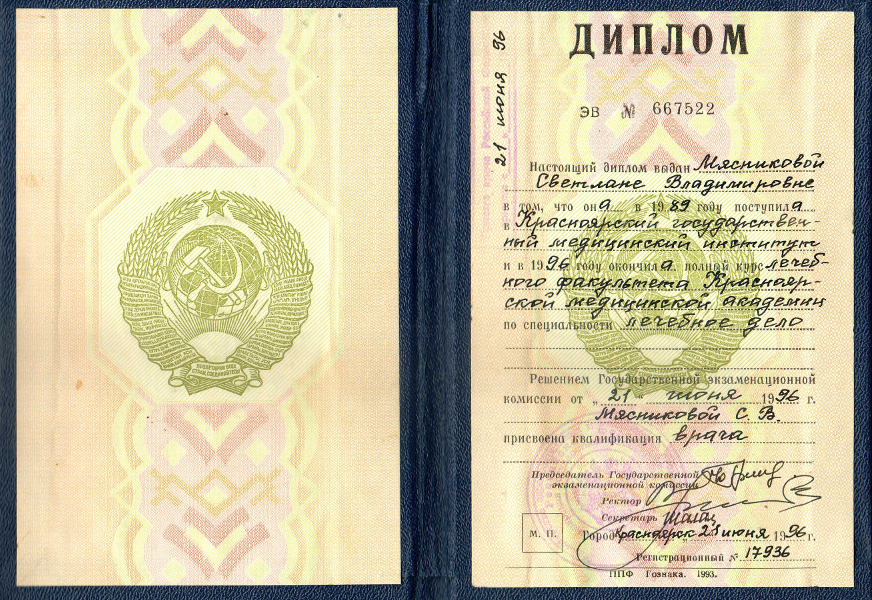 ДИПЛОМ
ЭВ № 667522
21 июня 96
Настоящий диплом выдан Мясниковой
Светлане Владимировне
в том, что она в 1989 году поступила
в Красноярский государствен-
ный медицинский институт
и в 1996 году окончила полный курс лечеб-
ного факультета Краснояр-
ской медицинской академии
по специальности лечебное дело
Решением Государственной экзаменационной
комиссии от „21“ июня 1996 г.
Мясниковой С. В.
присвоена квалификация врача
Председатель Государственной
экзаменационной комиссии
Ректор
Секретарь
М. П.
Город Красноярск 21 июня 1996 г.
Регистрационный № 17936
ППФ Гознака. 1993.